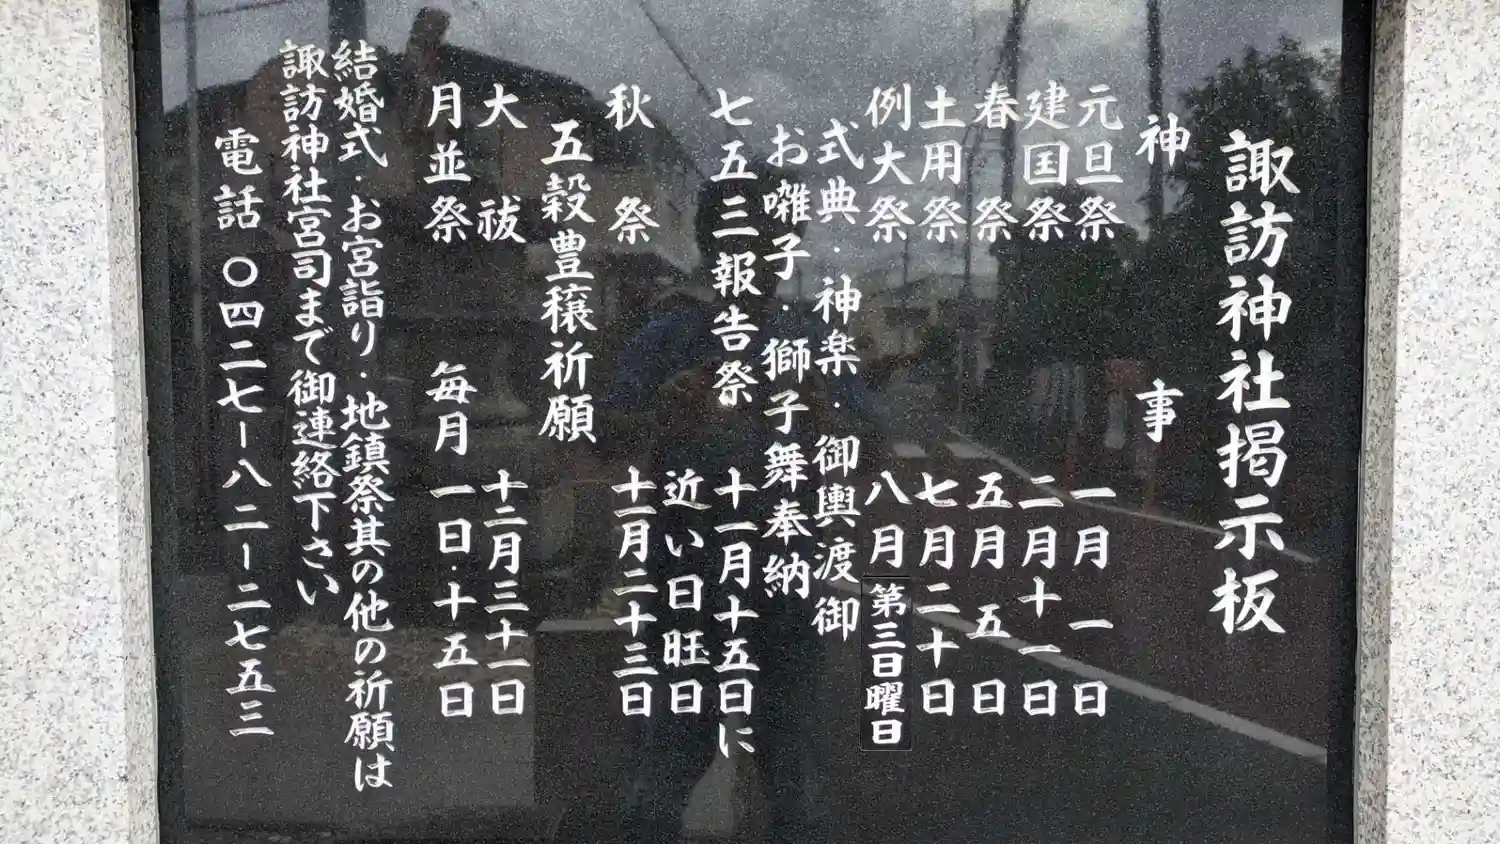 諏訪神社掲示板
神事
元旦祭 一月一日
建国祭 二月十一日
春祭 五月五日
土用祭 七月二十日
例大祭 八月第三日曜日
式典・神楽・御輿渡御
お囃子・獅子舞奉納
七五三報告祭 十一月十五日に
近い日旺日
秋祭 十一月二十三日
五穀豊穣祈願
大祓 十二月三十一日
月並祭 毎月一日・十五日
結婚式・お宮詣り・地鎮祭其の他の祈願は
諏訪神社宮司まで御連絡下さい
電話〇四二七ー八二ー二七五三